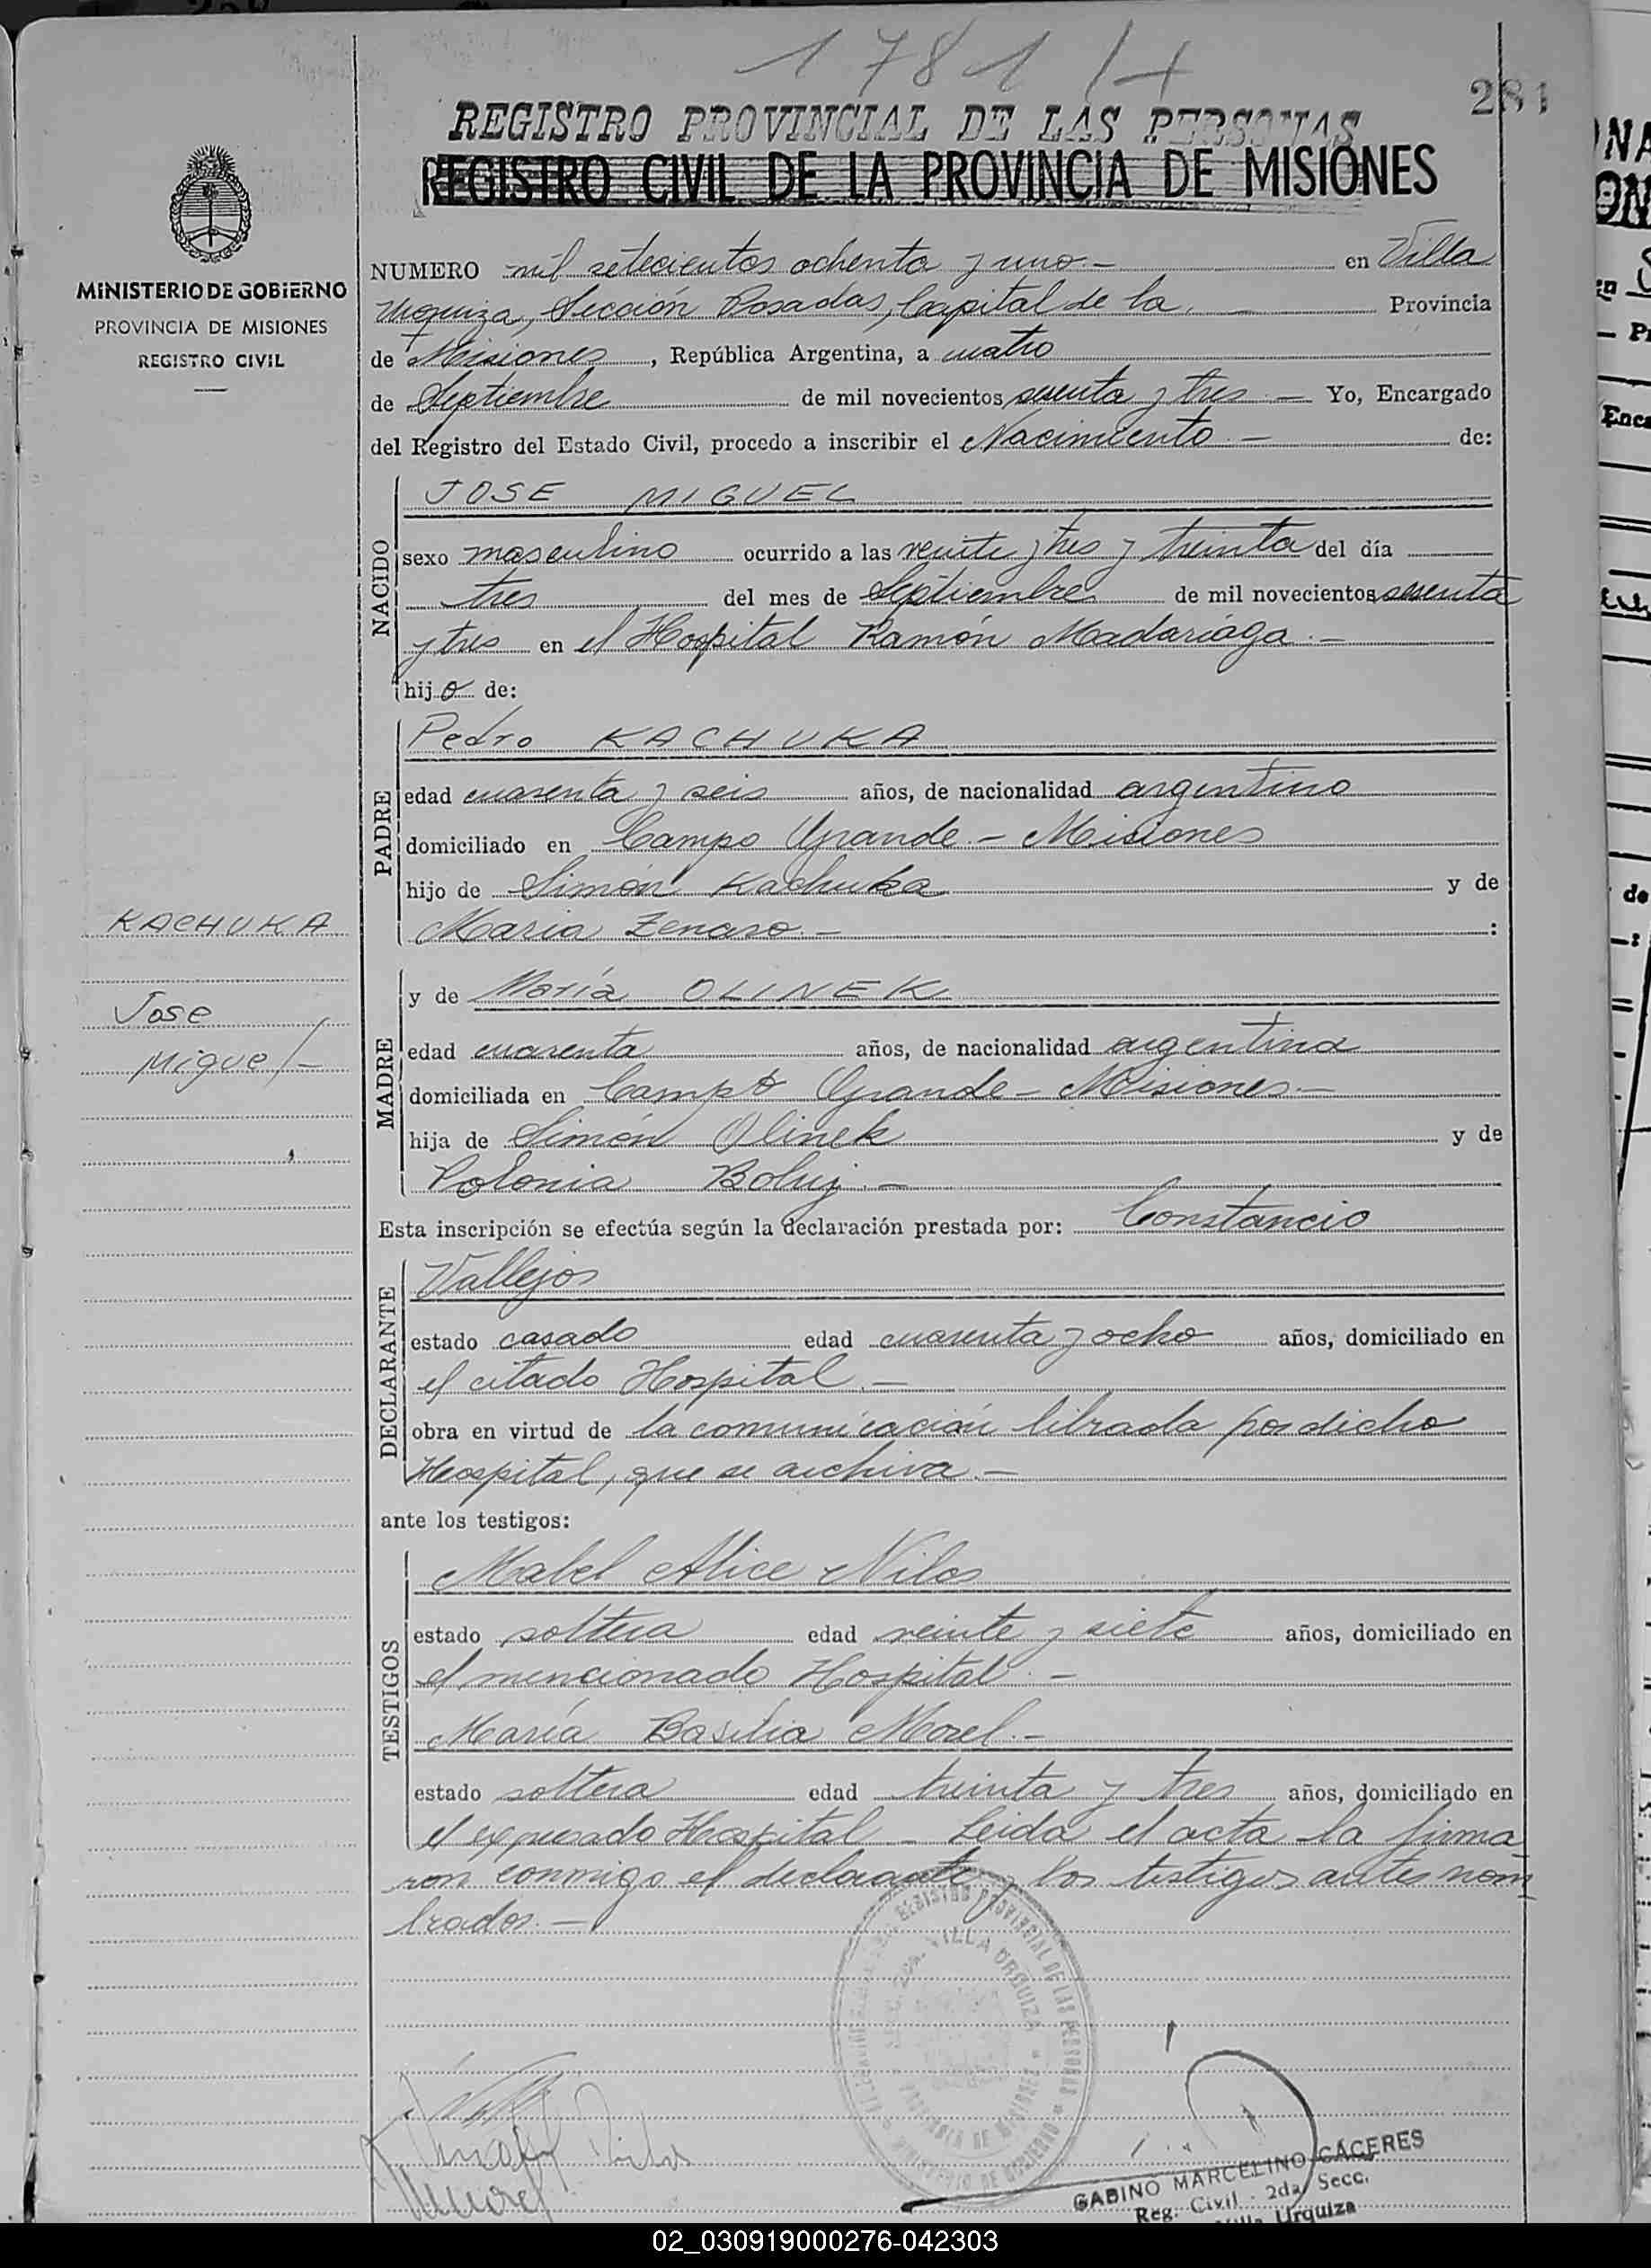 1781
281
REGISTRO PROVINCIAL DE LAS PERSONAS
REGISTRO CIVIL DE LA PROVINCIA DE MISIONES
MINISTERIO DE GOBIERNO
PROVINCIA DE MISIONES
REGISTRO CIVIL
NUMERO mil setecientos ochenta y uno.- en Villa
Urquiza, Sección Posadas, Capital de la Provincia
de Misiones, República Argentina, a cuatro
de Septiembre de mil novecientos sesenta y tres - Yo, Encargado
del Registro del Estado Civil, procedo a inscribir el Nacimiento - de:
NACIDO
JOSE MIGUEL
sexo masculino ocurrido a las veinte y tres y treinta del día
tres del mes de Septiembre de mil novecientos sesenta
y tres en el Hospital Ramón Madariaga.-
hijo de:
PADRE
Pedro KACHUKA
edad cuarenta y seis años, de nacionalidad argentino
domiciliado en Campo Grande - Misiones
hijo de Simón Kachuka y de
Maria Zenaro.- :
KACHUKA
Jose
Miguel-
MADRE
y de María OLINEK
edad cuarenta años, de nacionalidad argentina
domiciliada en Campo Grande - Misiones.-
hija de Simón Olinek y de
Polonia Boluj.-
Esta inscripción se efectúa según la declaración prestada por: Constancio
DECLARANTE
Vallejos
estado casado edad cuarenta y ocho años, domiciliado en
el citado Hospital.-
obra en virtud de la comunicación librada por dicho
Hospital, que se archiva.-
ante los testigos:
TESTIGOS
Mabel Alice Nilos
estado soltera edad veinte y siete años, domiciliado en
el mencionado Hospital.-
María Basilia Morel.-
estado soltera edad treinta y tres años, domiciliado en
el expresado Hospital - Leida el acta la firma
ron conmigo el declarante y los testigos antes nom
brados.-
REGISTRO PROVINCIAL DE LAS PERSONAS
VILLA URQUIZA
PROVINCIA DE MISIONES
MINISTERIO DE GOBIERNO
GABINO MARCELINO CÁCERES
Reg. Civil - 2da. Secc.
Villa Urquiza
02_030919000276-042303